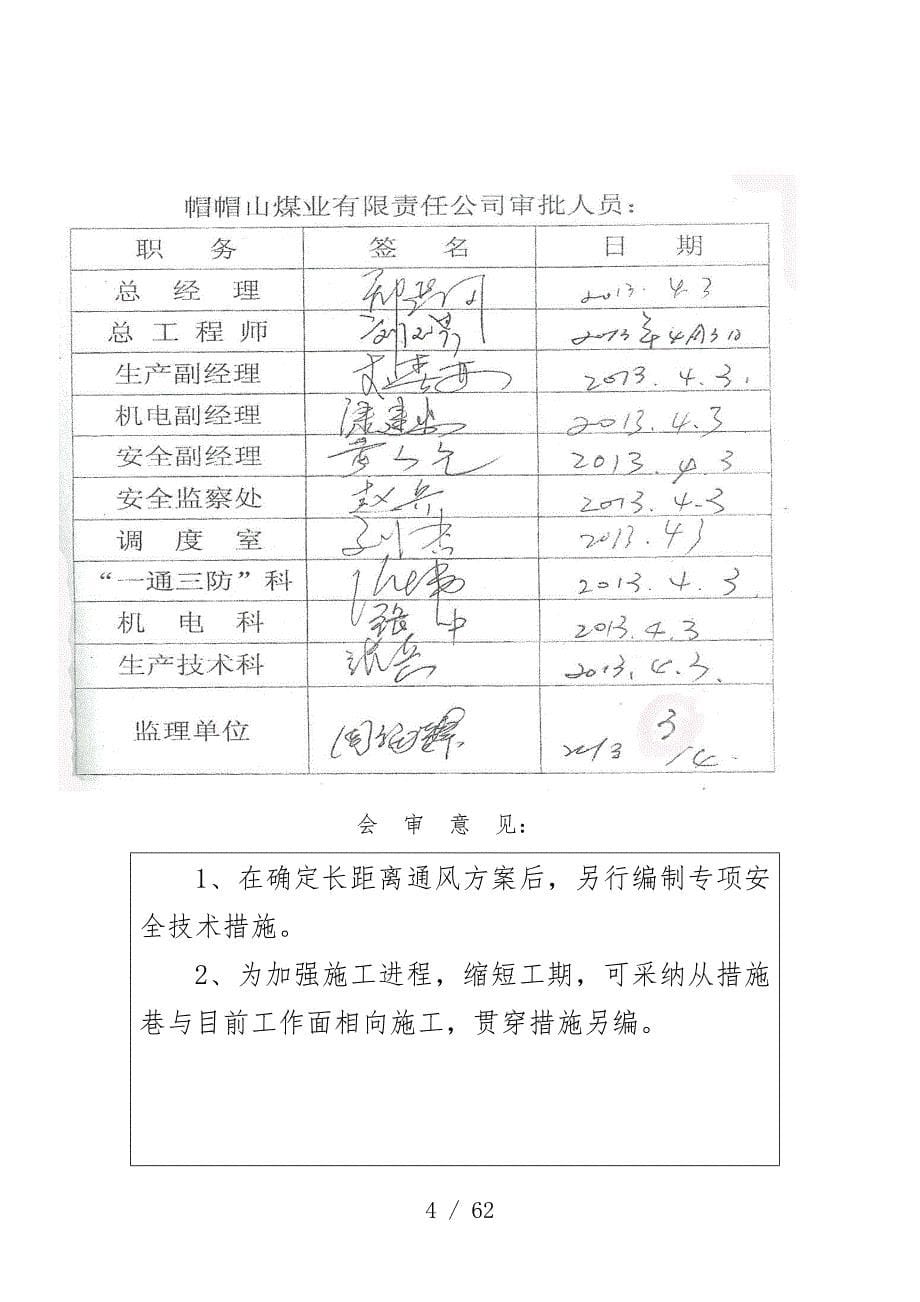 帽帽山煤业有限责任公司审批人员：
职 务 签 名 日 期
总 经 理 2013.4.3
总 工 程 师 2013年4月3日
生产副经理 2013.4.3.
机电副经理 2013.4.3
安全副经理 2013.4.3
安全监察处 赵兵 2013.4.3
调 度 室 刘杰 2013.4.3
“一通三防”科 2013.4.3.
机 电 科 2013.4.3
生产技术科 2013.4.3.
监理单位 2013 3/4.
会 审 意 见：
1、在确定长距离通风方案后，另行编制专项安
全技术措施。
2、为加强施工进程，缩短工期，可采纳从措施
巷与目前工作面相向施工，贯穿措施另编。
4 / 62